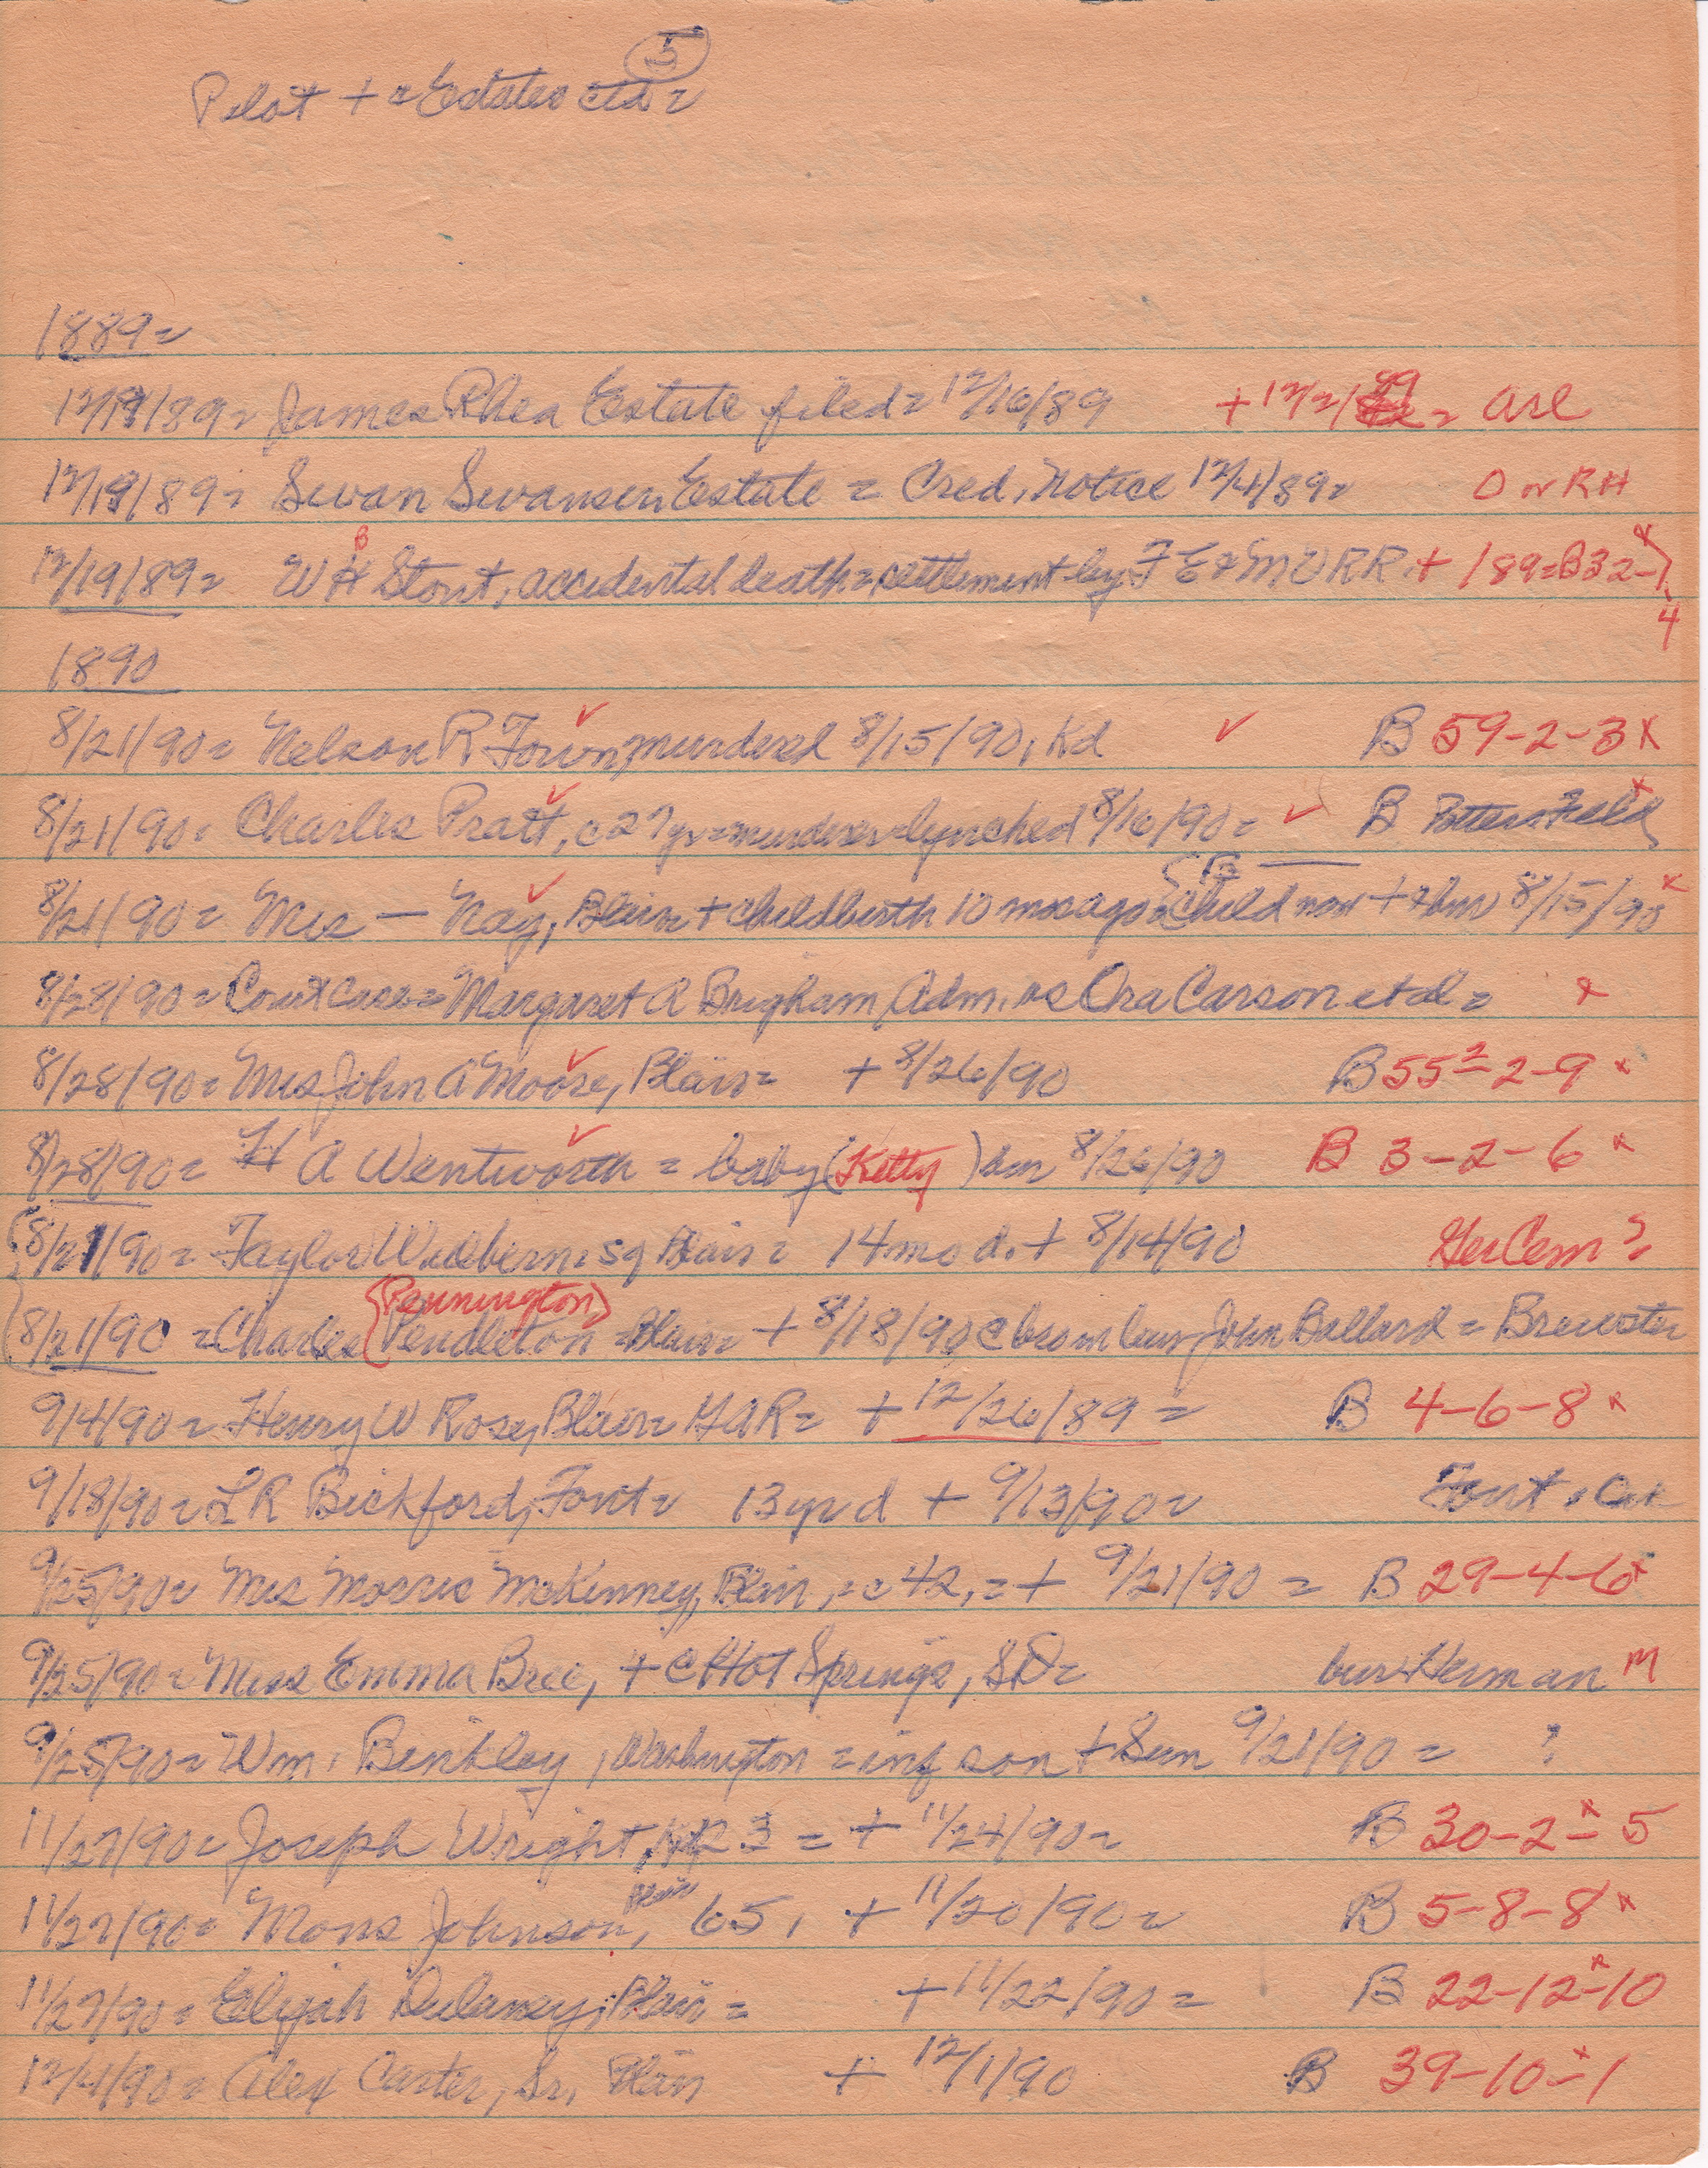 5
Pilot + = Estates ctd =
1889=
12/19/89= James Rhea Estate filed = 12/16/89 + 12/2/89 = Arl
12/19/89= Swan Swansen Estate = Cred. Notice 12/4/89= O or RH
B x
12/19/89= W H Stout, accidental death = settlement by F E & M V RR + 189=B32-1
4
1890
8/21/90= Nelson R Town, murdered 8/15/90, Kd ✓ B 59-2-3x
8/21/90= Charles Pratt, c27yr=murderer=lynched 8/16/90= ✓ B Potters Field x
8/21/90= Mrs — Nay, Blair= + childbirth 10 mos ago = child now + = bur 8/15/90 x
8/28/90= Court case= Margaret A Brigham, Adm. vs Ora Carson et al = x
8/28/90= Mrs John A Moore, Blair= + 8/26/90 B 55 2=2-9 x
8/28/90= H A Wentworth = baby (Kitty) bur 8/26/90 B 3-2-6 x
8/21/90= Taylor Widbern= Blair= 14 mo d. + 8/14/90 Ger Cem ?
(Pennington)
8/21/90 =Charles Pendleton =Blair= + 8/18/90 @ bro in law John Ballard = Brewster
9/4/90= Henry W Rose, Blair= GAR= + 12/26/89 = B 4-6-8 x
9/18/90= L R Bickford, Font= 13 yr d + 9/13/90= Font.
9/25/90= Mrs Morris McKinney, Blair, =c 42, = + 9/21/90 = B 29-4-6x
9/25/90= Miss Emma Bree, + @ Hot Springs, SD= bur Herman M
9/25/90= Wm. Benkley, Washington = inf son + Sun 9/21/90 = ?
11/27/90= Joseph Wright, 3 = + 11/24/90= B 30-2-5 x
Blair
11/27/90= Mons Johnson, 65, + 11/20/90= B 5-8-8 x
11/27/90= Elijah Dulaney, Blair = + 11/22/90= B 22-12-10 x
12/4/90= Alex Carter, Sr. Blair + 12/1/90 B 39-10-1 x